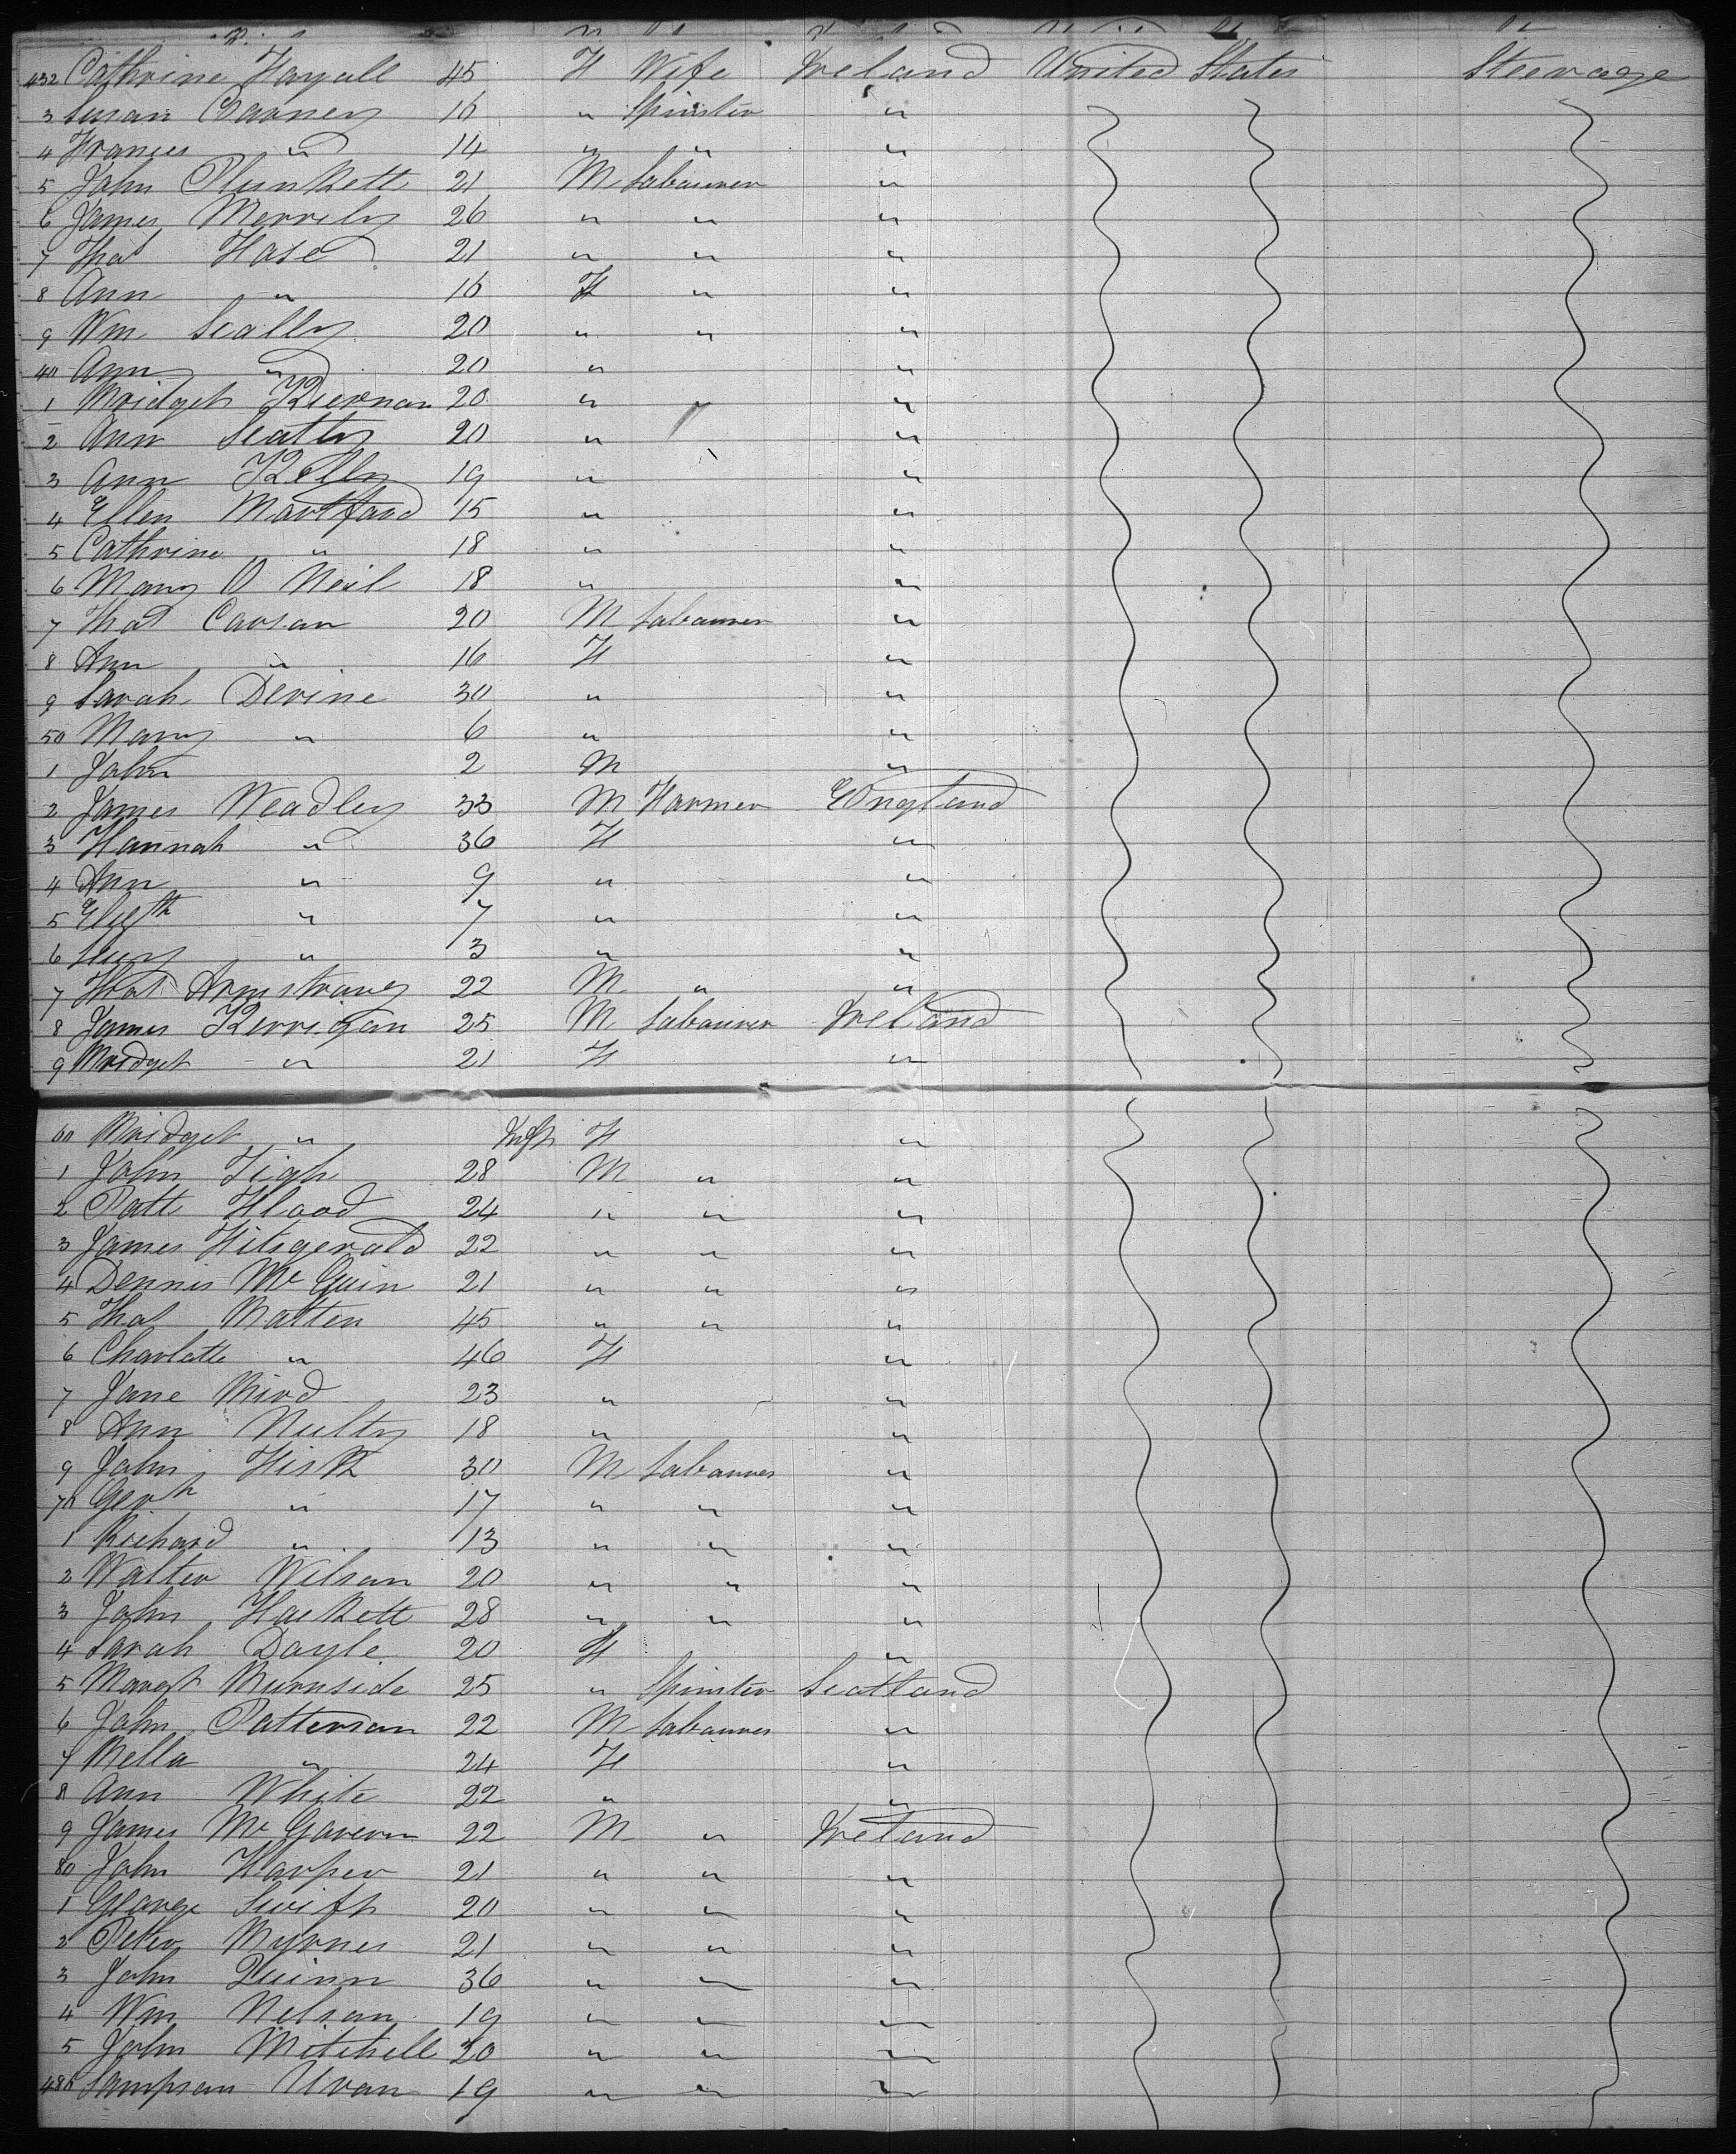 432 Cathrine Fayall 45 F Wife Ireland United States Steerage
3 Susan Carney 16 " Spinster "
4 Frances " 14 " " "
5 John Plunkett 21 M Labourer "
6 James Merrily 26 " " "
7 Thos Hase 21 " " "
8 Ann " 16 F " "
9 Wm Scally 20 " " "
40 Ann " 20 " "
1 Bridget Kiernan 20 " " "
2 Ann Scally 20 " "
3 Ann Kelly 19 " "
4 Ellen Martford 15 " "
5 Cathrine " 18 " "
6 Mary O Neil 18 " "
7 Thos Carson 20 M Labourer "
8 Ann " 16 F "
9 Sarah Devine 30 " "
50 Mary " 6 " "
1 John 2 M "
2 James Weadley 33 M Farmer England
3 Hannah " 36 F "
4 Ann " 9 " "
5 Elizth " 7 " "
6 Lucy " 3 " "
7 Thos Armstrong 22 M " "
8 James Kerrigan 25 M Labourer Ireland
9 Bridget " 21 F "
60 Bridget " Inft F "
1 John Tigh 28 M " "
2 Patt Flood 24 " " "
3 James Fitsgerald 22 " " "
4 Dennis Mc Guin 21 " " "
5 Thos Batten 45 " " "
6 Charlotte " 46 F "
7 Jane Bird 23 " "
8 Ann Nulty 18 " "
9 John Fisk 30 M Labourer "
70 Geoh " 17 " " "
1 Richard " 13 " " "
2 Walter Wilson 20 " " "
3 John Hackett 28 " " "
4 Sarah Doyle 20 F "
5 Margt Burnside 25 " Spinster Scotland
6 John Patterson 22 M Labourer "
7 Bella " 24 F "
8 Ann White 22 " "
9 James Mc Govern 22 M " Ireland
80 John Harper 21 " " "
1 George Swift 20 " " "
2 Peter Byrnes 21 " " "
3 John Quinn 36 " " "
4 Wm Nelson 19 " " "
5 John Mitchell 20 " " "
486 Sampson Uran 19 " " "